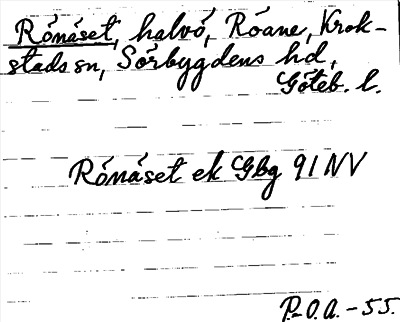 Rónáset, halvó, Róane, Krok-
stads sn, Sórbygdens hd,
Göteb. l.
Rónáset ek Gbg 91 NV
P.-O.A. - 55.